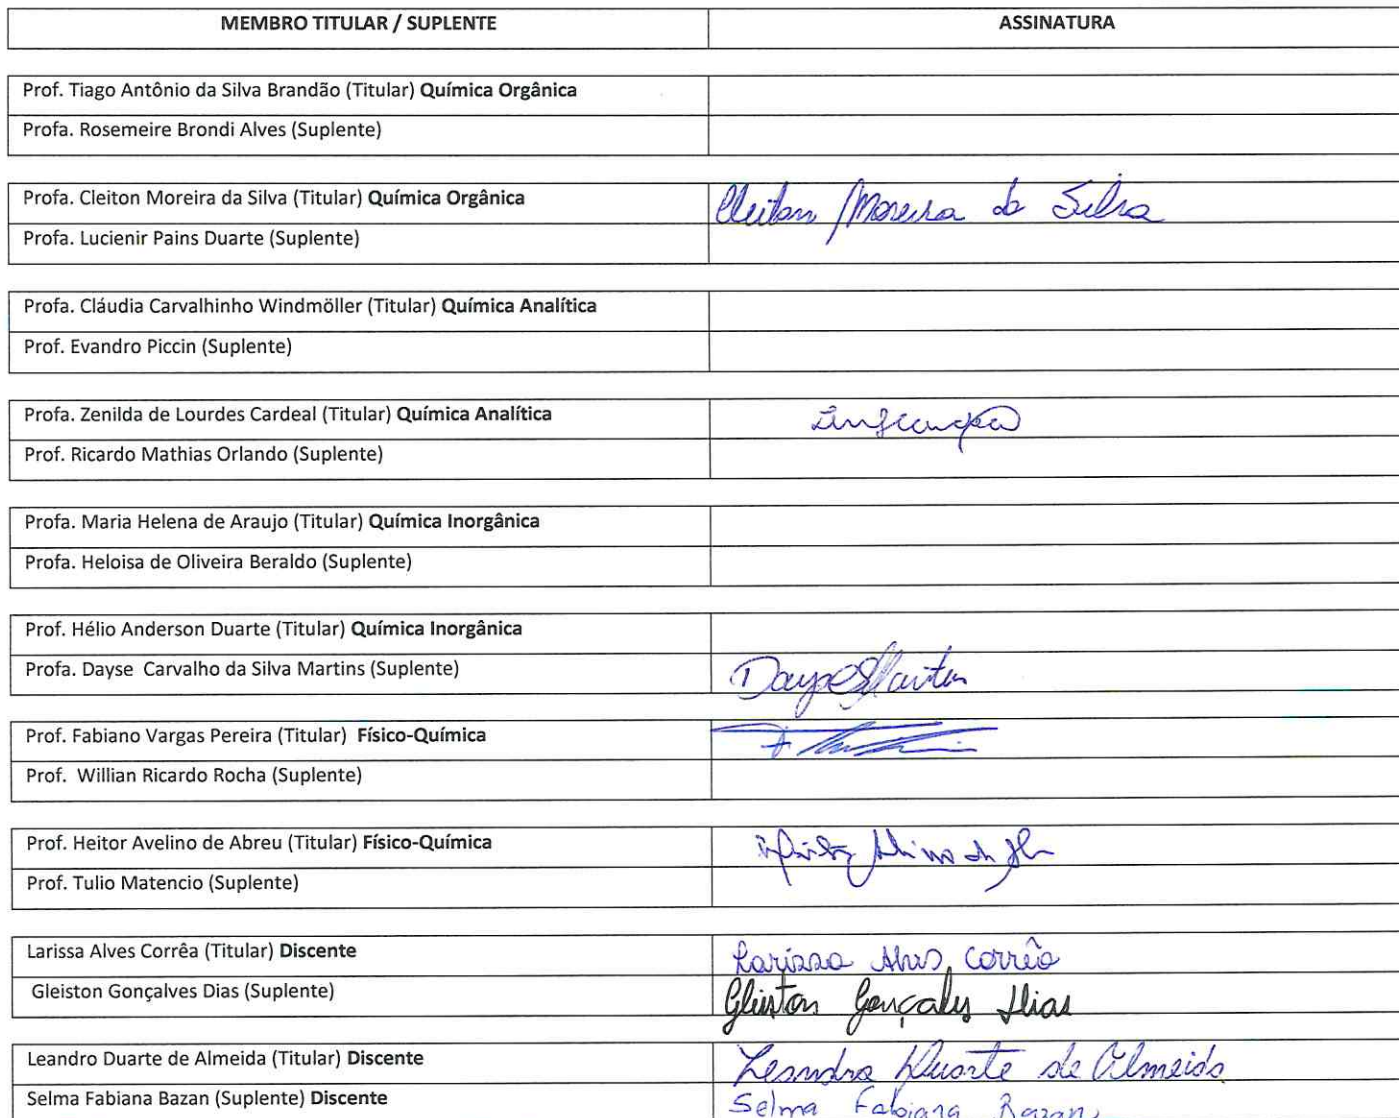 MEMBRO TITULAR / SUPLENTE ASSINATURA
Prof. Tiago Antônio da Silva Brandão (Titular) Química Orgânica
Profa. Rosemeire Brondi Alves (Suplente)
Profa. Cleiton Moreira da Silva (Titular) Química Orgânica Cleiton Moreira da Silva
Profa. Lucienir Pains Duarte (Suplente)
Profa. Cláudia Carvalhinho Windmöller (Titular) Química Analítica
Prof. Evandro Piccin (Suplente)
Profa. Zenilda de Lourdes Cardeal (Titular) Química Analítica
Prof. Ricardo Mathias Orlando (Suplente)
Profa. Maria Helena de Araujo (Titular) Química Inorgânica
Profa. Heloisa de Oliveira Beraldo (Suplente)
Prof. Hélio Anderson Duarte (Titular) Química Inorgânica
Profa. Dayse Carvalho da Silva Martins (Suplente) Dayse Martins
Prof. Fabiano Vargas Pereira (Titular) Físico-Química
Prof. Willian Ricardo Rocha (Suplente)
Prof. Heitor Avelino de Abreu (Titular) Físico-Química
Prof. Tulio Matencio (Suplente)
Larissa Alves Corrêa (Titular) Discente Larissa Alves Corrêa
Gleiston Gonçalves Dias (Suplente) Gleiston Gonçalves Dias
Leandro Duarte de Almeida (Titular) Discente Leandro Duarte de Almeida
Selma Fabiana Bazan (Suplente) Discente Selma Fabiana Bazan